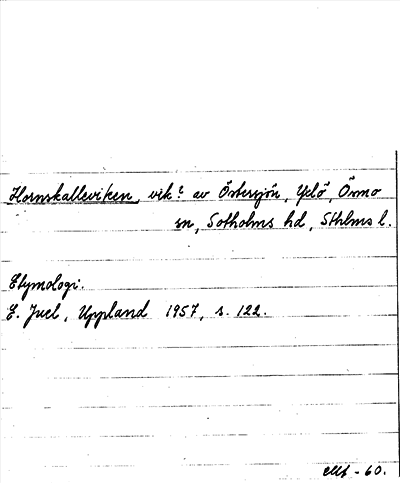 Hornskalleviken, vik? av Östersjön, Yxlö, Ösmo
sn, Sotholms hd, Sthlms l.
Etymologi.
E. Juel, Uppland 1957, s. 122.
-60.